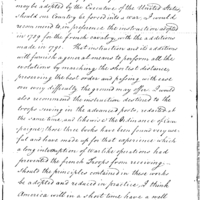 may be adopted by the Executive of the United States,
should our Country be forced into a war. I would
recommend to in preference the instruction adopted
in 1789 for the french cavalry, with the additions
made in 1791. That instruction and its additions
will furnish a general means to perform all the
evolutions by marching the shortest distance,
preserving the best order and passing with ease
over every difficulty the ground may offer. I would
also recommend the instruction destined to the
troops serving in the advanced posts, redacted at
the same time, and likewise the Ordinance of Cam
paigne; these three books have been found very use
ful and have made up for that experience which
a long interruption of warlike operations had
prevented the french Troops from receiving.
Should the principles contained in these works
be adopted and reduced in practice, I think
America will in a short time have a well